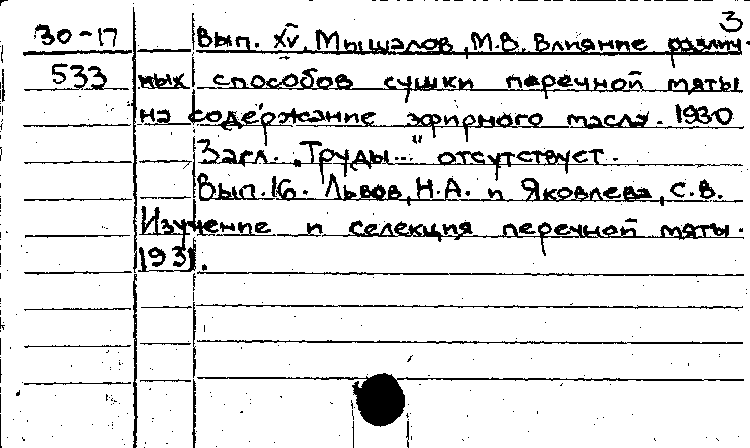 3
30-17 Вып. XV. Мышалов, М.В. Влияние различ-
533 ных способов сушки перечной мяты
на содержание эфирного масла. 1930
Загл. „Труды..." отсутствует.
Вып. 16. Львов, Н.А. и Яковлева, С.В.
Изучение и селекция перечной мяты.
1931.